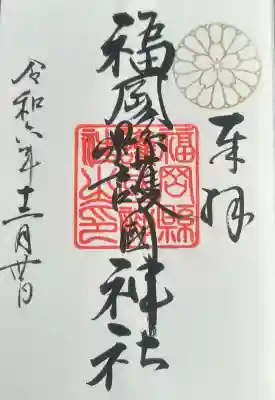 奉拝
福岡縣護國神社
福岡縣
護國神
社之印
令和六年十二月廿日